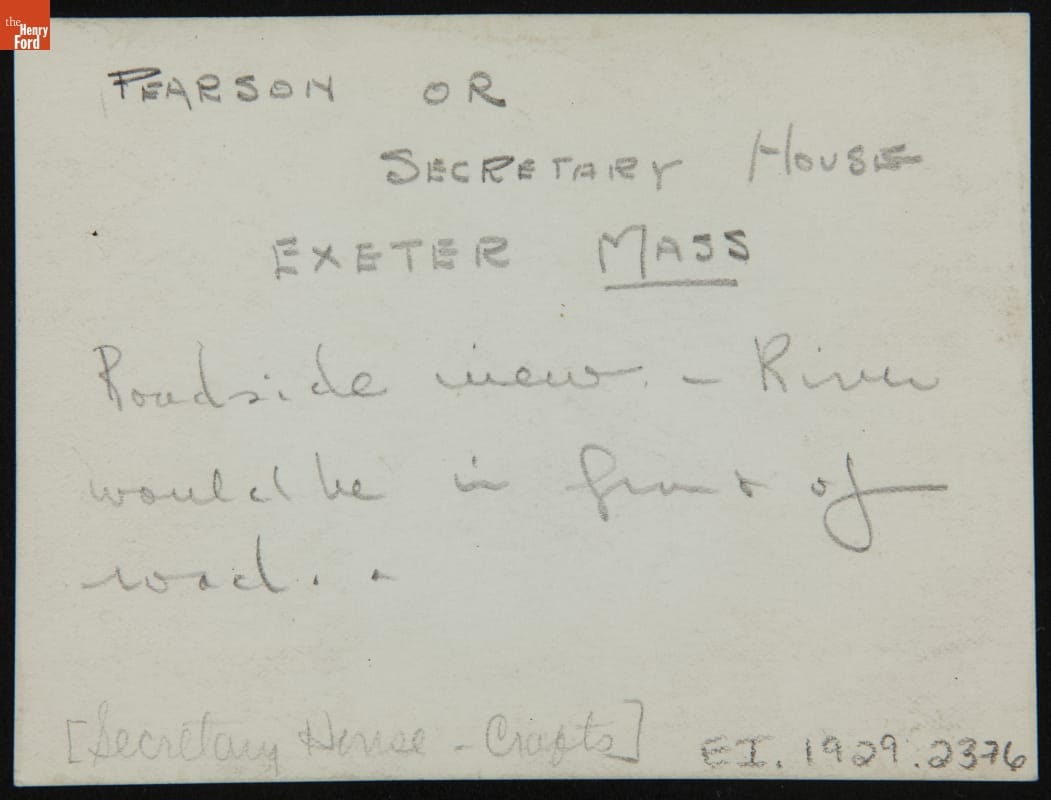 the Henry Ford
PEARSON OR
SECRETARY HOUSE
EXETER MASS
Roadside view. - River
would be in front of
road. .
[Secretary House - Crafts]
EI. 1929.2376